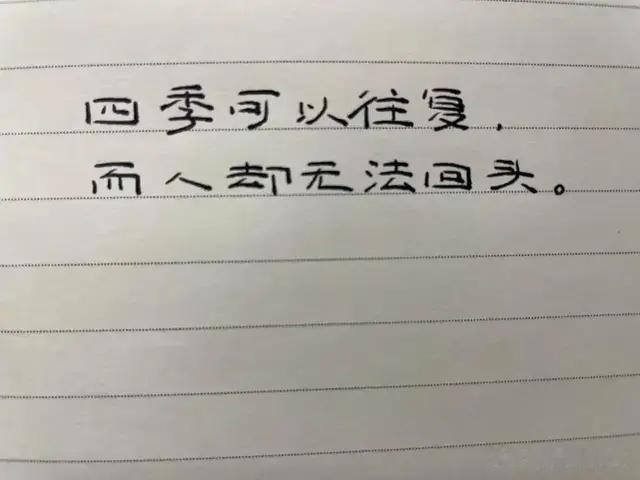 四季可以往复，
而人却无法回头。